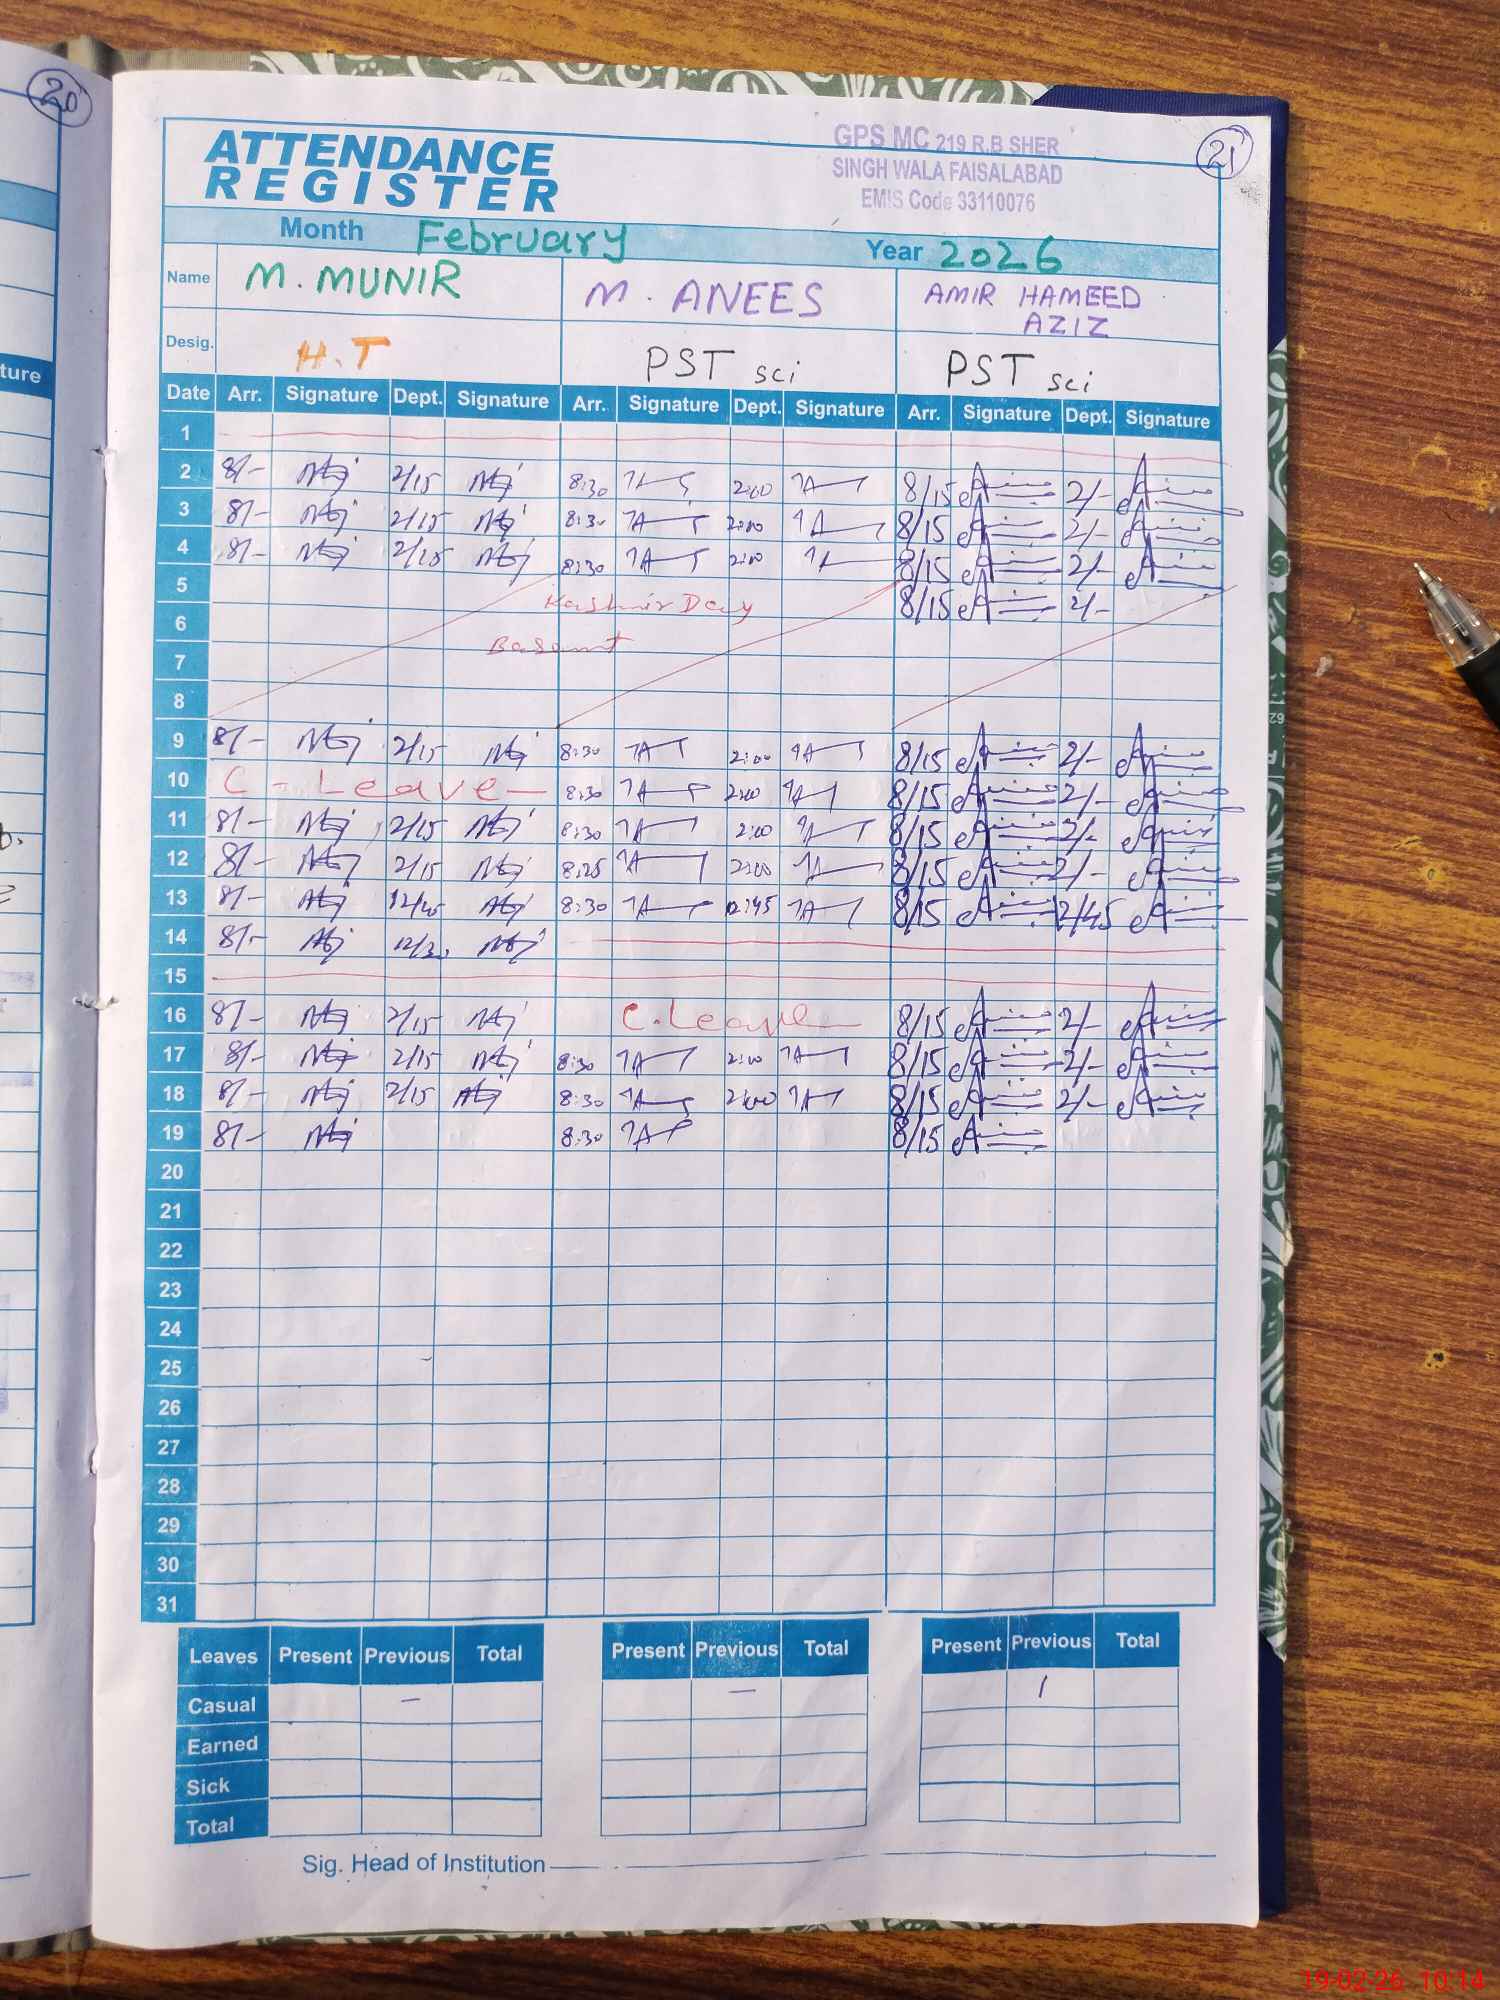 20
ture
21
GPS MC 219 R.B SHER
SINGH WALA FAISALABAD
EMIS Code 33110076
ATTENDANCE
REGISTER
Month February Year 2026
Name M. MUNIR M. ANEES AMIR HAMEED
AZIZ
Desig. H.T PST sci PST sci
Date Arr. Signature Dept. Signature Arr. Signature Dept. Signature Arr. Signature Dept. Signature
1
2 8/- 2/15 8:30 2:00 8/15 2/-
3 8/- 2/15 8:30 2:00 8/15 2/-
4 8/- 2/15 8:30 2:00 8/15 2/-
5 Kashmir Day 8/15 2/-
6 Basant
7
8
9 8/- 2/15 8:30 2:00 8/15 2/-
10 C - Leave - 8:30 2:00 8/15 2/-
11 8/- 2/15 8:30 2:00 8/15 2/-
12 8/- 2/15 8:25 2:00 8/15 2/-
13 8/- 12/45 8:30 12:45 8/15 12/45
14 8/- 12/30
15
16 8/- 2/15 C. Leave 8/15 2/-
17 8/- 2/15 8:30 2:00 8/15 2/-
18 8/- 2/15 8:30 2:00 8/15 2/-
19 8/- 8:30 8/15
20
21
22
23
24
25
26
27
28
29
30
31
Leaves Present Previous Total Present Previous Total Present Previous Total
Casual - - 1
Earned
Sick
Total
Sig. Head of Institution
19-02-26 10:14